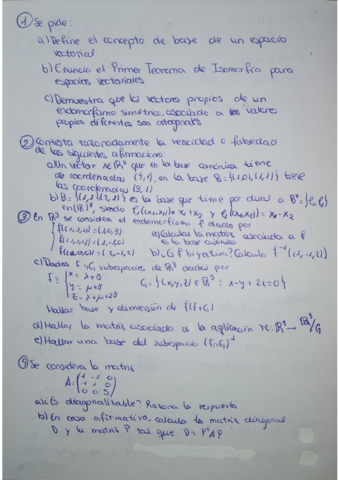 ① Se pide:
a) Define el concepto de base de un espacio
vectorial.
b) Enuncia el Primer Teorema de Isomorfía para
espacios vectoriales
c) Demuestra que los vectores propios de un
endomorfismo simétrico, asociado a los valores
propios diferentes son ortogonales
② Contesta razonadamente la veracidad o falsedad
de las siguientes afirmaciones
a) Un vector x∈R² que en la base canónica tiene
de coordenadas (4,1), en la base B={(1,0),(1,1)} tiene
las coordenadas (3,1)
b) B={(1,1),(1,-1)} es la base que tiene por dual a B*={
en (R²)*, siendo
③ En R³ se considera el endomorfismo f dado por
a) Calcular la matriz asociada a f
en la base canónica
b) ¿Es f biyectiva? Calcula f⁻¹(1,-1,2)
c) Dados F y G subespacios de R³ dados por
F= { x=λ+γ
y=μ+γ
z=λ+μ+2γ
G={(x,y,z)∈R³: x-y+2z=0}
Hallar base y dimensión de f(F∩G)
d) Hallar la matriz asociada a la aplicación π: R³→R³/G
e) Hallar una base del subespacio
④ Se considera la matriz
A=
a) ¿Es diagonalizable? Razona la respuesta
b) En caso afirmativo, calcula la matriz diagonal
D y la matriz P tal que D=P⁻¹AP